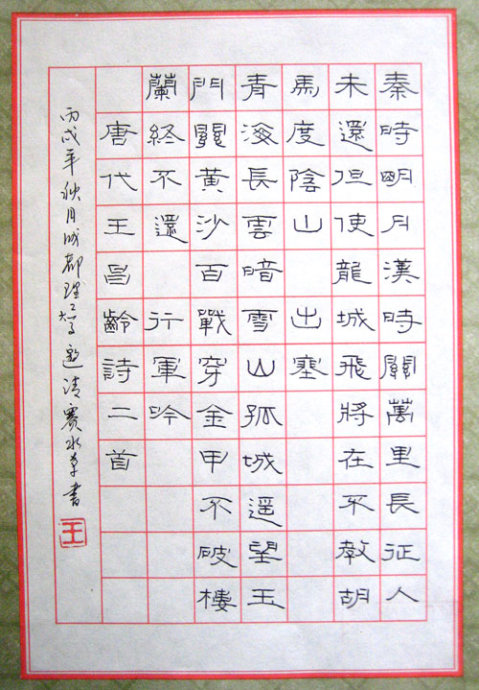 秦時明月漢時關萬里長征人
未還但使龍城飛將在不教胡
馬度陰山 出塞
青海長雲暗雪山孤城遥望玉
門關黃沙百戰穿金甲不破樓
蘭終不還 行軍吟
唐代王昌齡詩二首
丙戌年秋月成都理工大学邀请賽水書
王